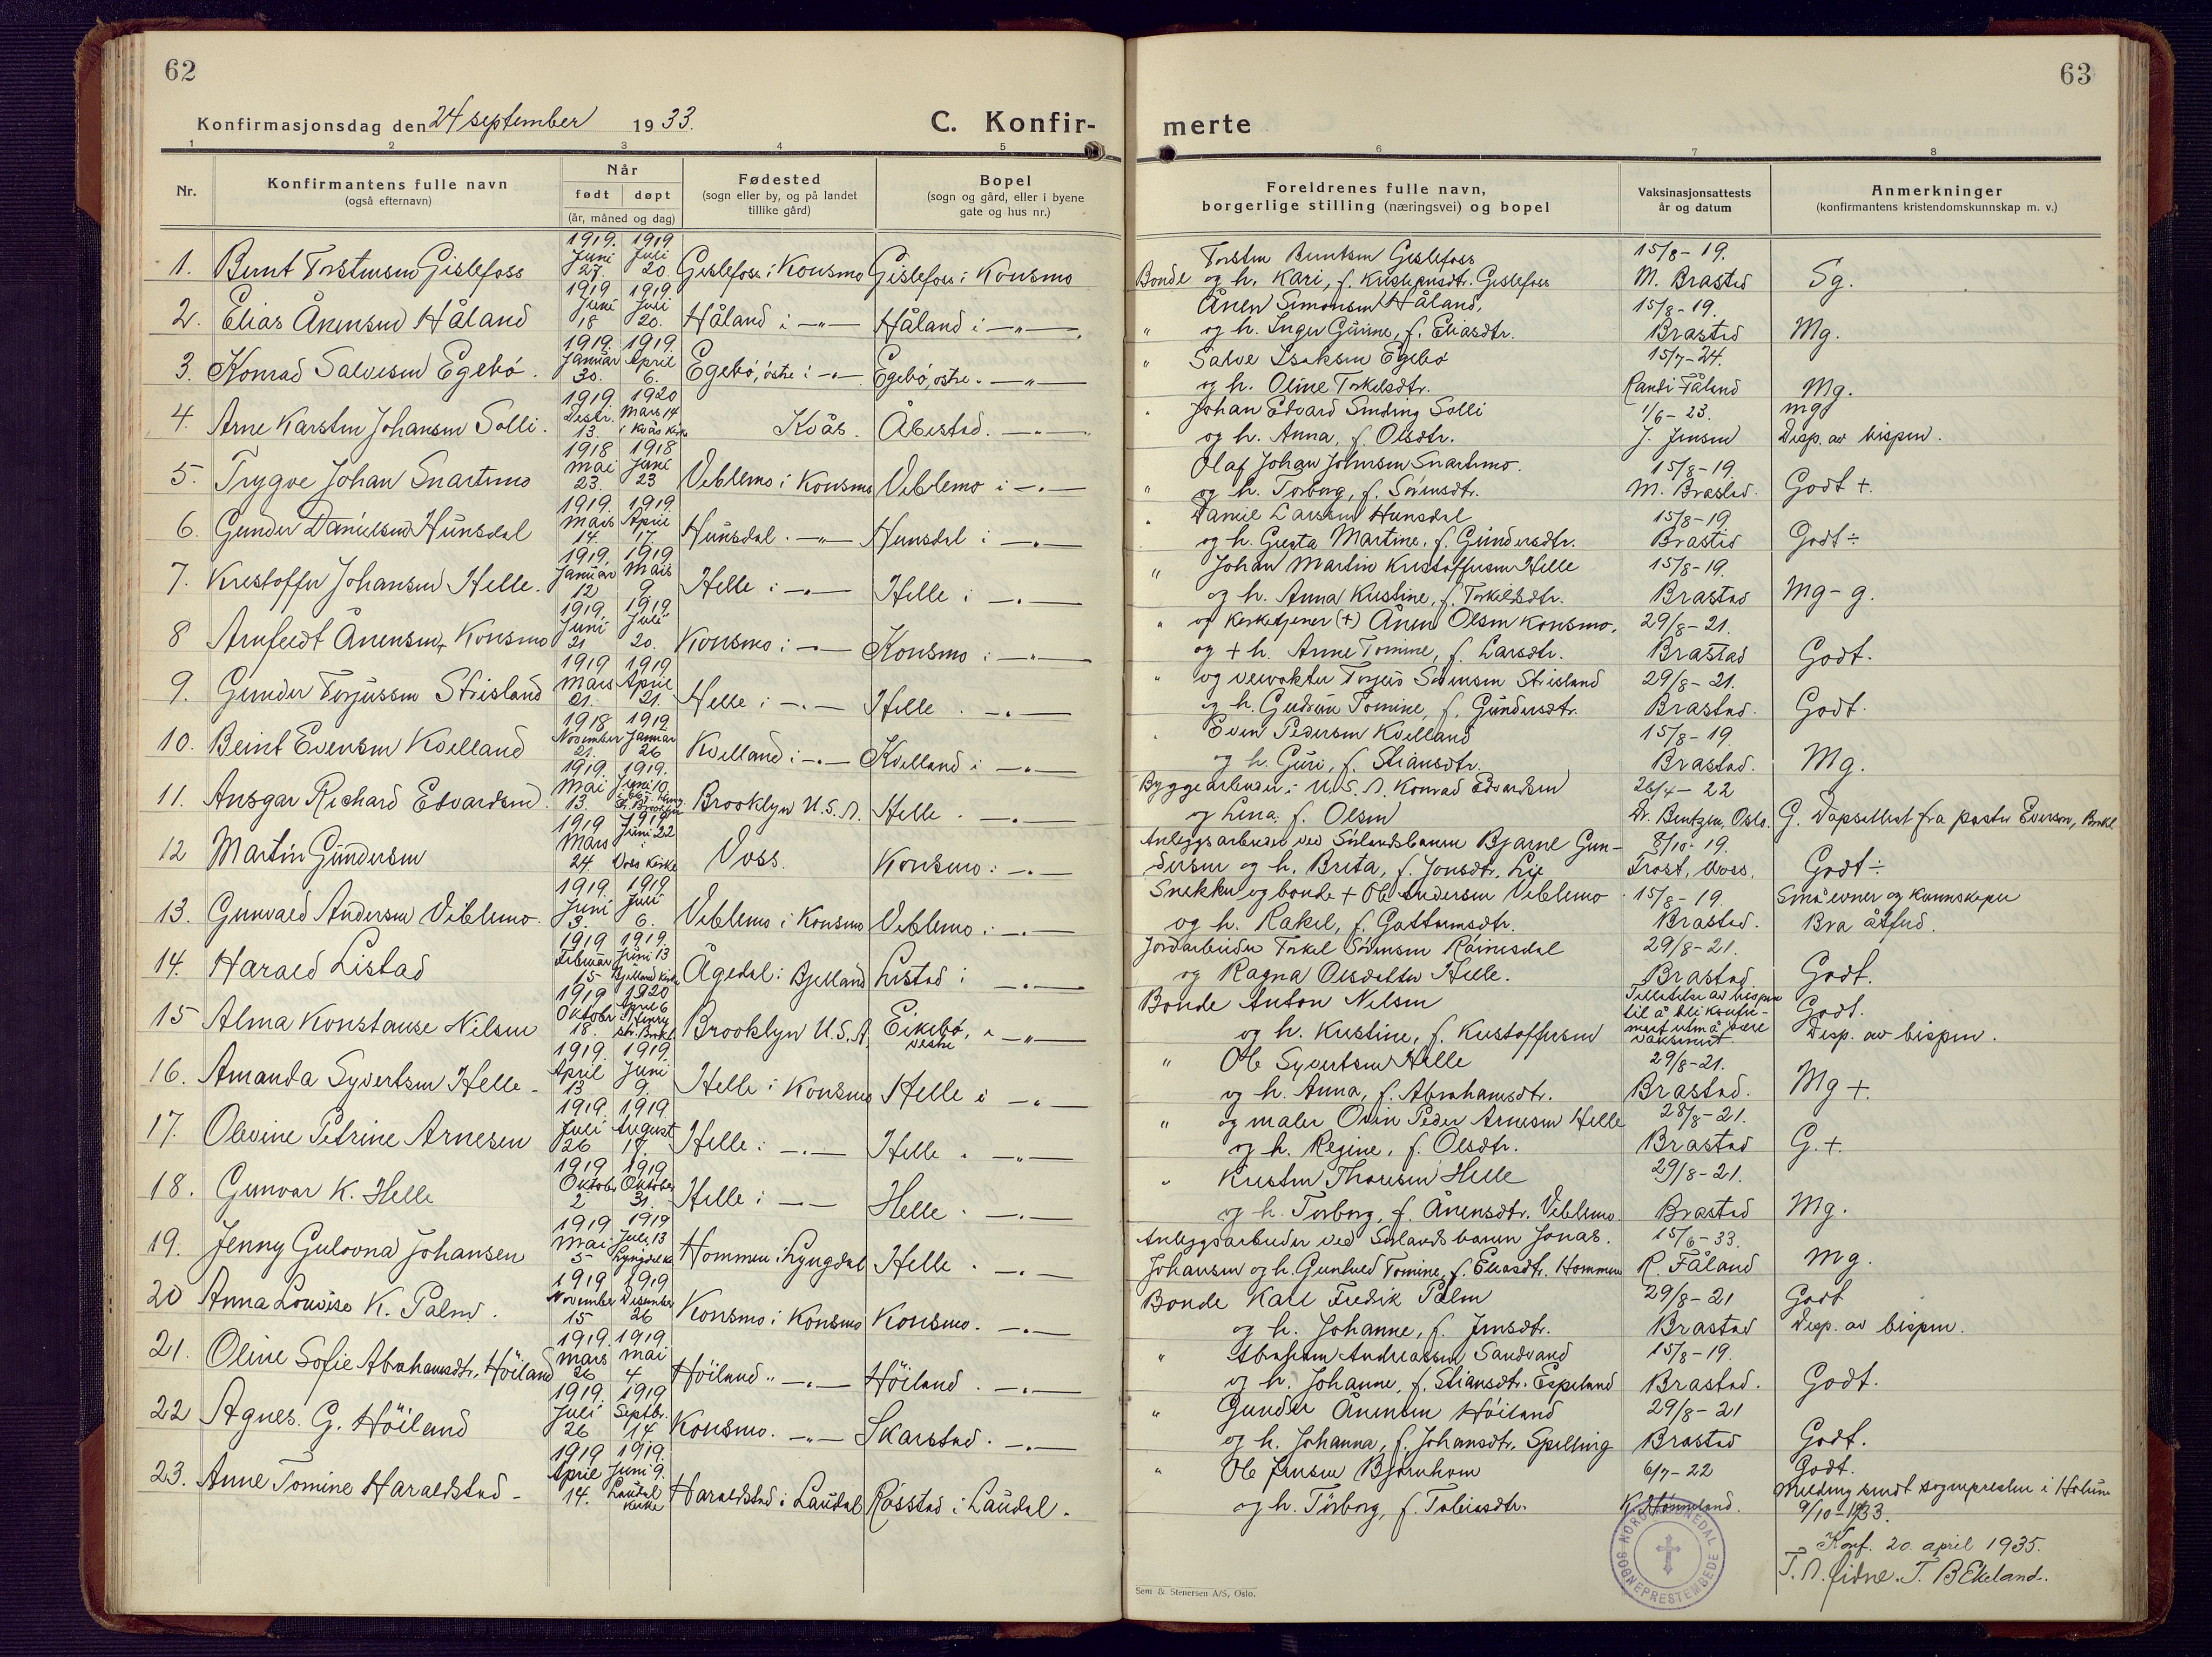 62
63
Konfirmasjonsdag den 24 september 1933.
C. Konfir-
merte
1 2 3 4 5 6 7 8
Nr.
Konfirmantens fulle navn
(også efternavn)
Når
født døpt
(år, måned og dag)
Fødested
(sogn eller by, og på landet
tillike gård)
Bopel
(sogn og gård, eller i byene
gate og hus nr.)
Foreldrenes fulle navn,
borgerlige stilling (næringsvei) og bopel
Vaksinasjonsattests
år og datum
Anmerkninger
(konfirmantens kristendomskunnskap m. v.)
1919. 1919 Torsten Berntsen Gislefoss 15/8-19.
1. Bernt Torstensen Gislefoss Juni 27. Juli 20. Gislefoss i Konsmo Gislefoss i Konsmo Bonde og h. Kari, f. Gislefoss M. Brastad Sg.
1919 1919 Ånen Simonsen Håland, 15/8-19.
2. Elias Ånensen Håland Juni 18 Juli 20. Håland i -„- Håland i -„- „ og h. Inger Gurine, f. Eliasdtr. Brastad Mg.
1919. 1919. „ Salve Isaksen Egebø 15/7-24.
3. Konrad Salvesen Egebø. Januar 30. April 6. Egebø, østre i -„- Egebø, østre. -„- og h. Oline Torkelsdtr. Randi Fåland Mg.
1919. 1920 Johan Edvard Sinding Solli 1/6-23. mg
4. Arne Karsten Johansen Solli. Desbr. 13. Mars 14 i Kvås Kirke Kvås. Åbestad. -„- og h. Anna, f. Olsdtr. J. Jensen Disp. av bispen.
1918 1918 Olaf Johan Johnsen Snartemo. 15/8-19.
5. Trygve Johan Snartemo Mai 23. Juni 23 Viblemo i Konsmo Viblemo i -„- „ og h. Torborg, f. Sørensdtr. M. Brastad. Godt +.
1919. 1919. Daniel Larssen Hunsdal 15/8-19.
6. Gunder Danielsen Hunsdal Mars 14. April 17. Hunsdal. -„- Hunsdal i -„- og h. Gusta Martine, f. Gundersdtr. Brastad Godt ÷
1919. 1919 „ Johan Martin Kristoffersen Helle 15/8-19.
7. Kristoffer Johansen Helle. Januar 12 Mars 9. Helle i -„- Helle i -„- og h. Anna Kristine, f. Torkildsdtr. Brastad Mg-g.
1919. 1919 „ og Kirketjener (+) Ånen Olsen Konsmo. 29/8-21.
8 Arnfeldt Ånensen Konsmo Juni 21 Juli 20. Konsmo i -„- Konsmo i -„- og + h. Anne Tomine, f. Larsdtr. Brastad Godt.
1919 1919 „ og veivokter Terjus Sørensen Strisland 29/8-21.
9. Gunder Terjussen Strisland Mars 21. April 21. Helle i -„- Helle. -„- og h. Gudrun Tomine, f. Gundersdtr. Brastad. Godt.
1918 1919 Even Pedersen Kvelland 15/8-19
10. Beint Evensen Kvelland November 21. Januar 26 Kvelland i -„- Kvelland i -„- og h. Guri, f. Stiansdtr. Brastad. Mg.
1919. 1919. Byggearbeider i U.S.A. Konrad Edvardsen 26/4-22
11. Ansgar Richard Edvardsen. Mai 13. Juni 10. Brooklyn U.S.A. Helle. -„- og Lina, f. Olsen Dr. Bentzen, Oslo. G. Dåpsattest fra pastor Everson, Brokl.
1919 1919 Anleggsarbeider ved Sørlandsbanen Bjarne Gun- 8/10-19.
12 Martin Gundersen Mars 24. Juni 22 i Voss Kirke Voss. Konsmo i -„- dersen og h. Brita, f. Jonsdtr. Lie Trost, Voss. Godt ÷
1919. 1919. Snekker og bonde + Ole Andersen Viblemo 15/8-19. Små evner og kunnskaper
13. Gunvald Andersen Viblemo. Juni 3. Juli 6. Viblemo i Konsmo Viblemo i -„- og h. Rakel, f. Guttormsdtr. Brastad. Bra åtferd.
1919 1919. Jordarbeider Torkel Sørensen 29/8-21.
14. Harald Listad Februar 15 Juni 13 Bjelland Kirke Ågedal i Bjelland Listad i -„- og Ragna Olsdatter Helle. Brastad Godt.
1919 1920 Bonde Anton Nilsen Tillatelse av bispen Godt.
15 Alma Konstanse Nilsen Oktobr 18. April 6 Brooklyn U.S.A. Eikebø, vestre i -„- og h. Kristine, f. Kristoffersen til å bli konfir- mert uten å være vaksinert Disp. av bispen.
1919. 1919. „ Ole Syvertsen Helle 29/8-21.
16. Amanda Syvertsen Helle - April 13 Juni 9. Helle i Konsmo Helle i -„- og h. Anna, f. Abrahamsdtr. Brastad. Mg +.
1919. 1919. „ og maler Odin Peder Arnesen Helle 28/8-21.
17. Olevine Petrine Arnesen Juli 26 August 17. Helle i -„- Helle. -„- og h. Regine, f. Olsdtr. Brastad G. +.
1919 1919 „ Kristen Thoresen Helle 29/8-21.
18. Gunvor K. Helle Oktobr 2 Oktober 31. Helle i -„- Helle. -„- og h. Torborg, f. Ånensdtr. Viblemo. Brastad Mg.
1919 1919 Anleggsarbeider ved Sørlandsbanen Jonas. 15/6-33.
19. Jenny Gulovna Johansen Mai 5 Juli 13 Lyngdal k. Hommen i Lyngdal Helle. -„- Johansen og h. Gunhild Tomine, f. Eliasdtr. Hommen R. Fåland Mg.
1919 1919 Bonde Karl Fredrik Palm 29/8-21 Godt
20 Anna Lovise K. Palm. November 15 Desember 26 Konsmo i Konsmo Konsmo. -„- og h. Johanne, f. Jensdtr. Brastad Disp. av bispen.
1919. 1919 „ Abraham Andreassen Sandvand 15/8-19.
21. Oline Sofie Abrahamsdtr. Höiland Mars 26 Mai 4 Höiland „ -„- Höiland. -„- og h. Johanne, f. Stiansdtr. Espeland Brastad. Godt.
1919. 1919 „ Gunder Ånensen Höiland 29/8-21
22 Agnes. G. Höiland Juli 26 Septbr. 14 Konsmo. -„- Skarstad. -„- og h. Johanna, f. Johansdtr. Spilling Brastad Godt.
1919 1919. „ Ole Jensen Bjørnhom 6/7-22 Godt.
23. Anne Tomine Haraldstad - April 14. Juni 9. Laudal Kirke Haraldstad i Laudal Røsstad i Laudal. og h. Torborg, f. Tobiasdtr. K. Melding sendt sognepresten i Holum
9/10-1933.
Konf. 20. april 1935.
T. B. Ekeland.
NORD-AUDNEDAL SOGNEPRESTEMBEDE
Sem & Stenersen A/S, Oslo.